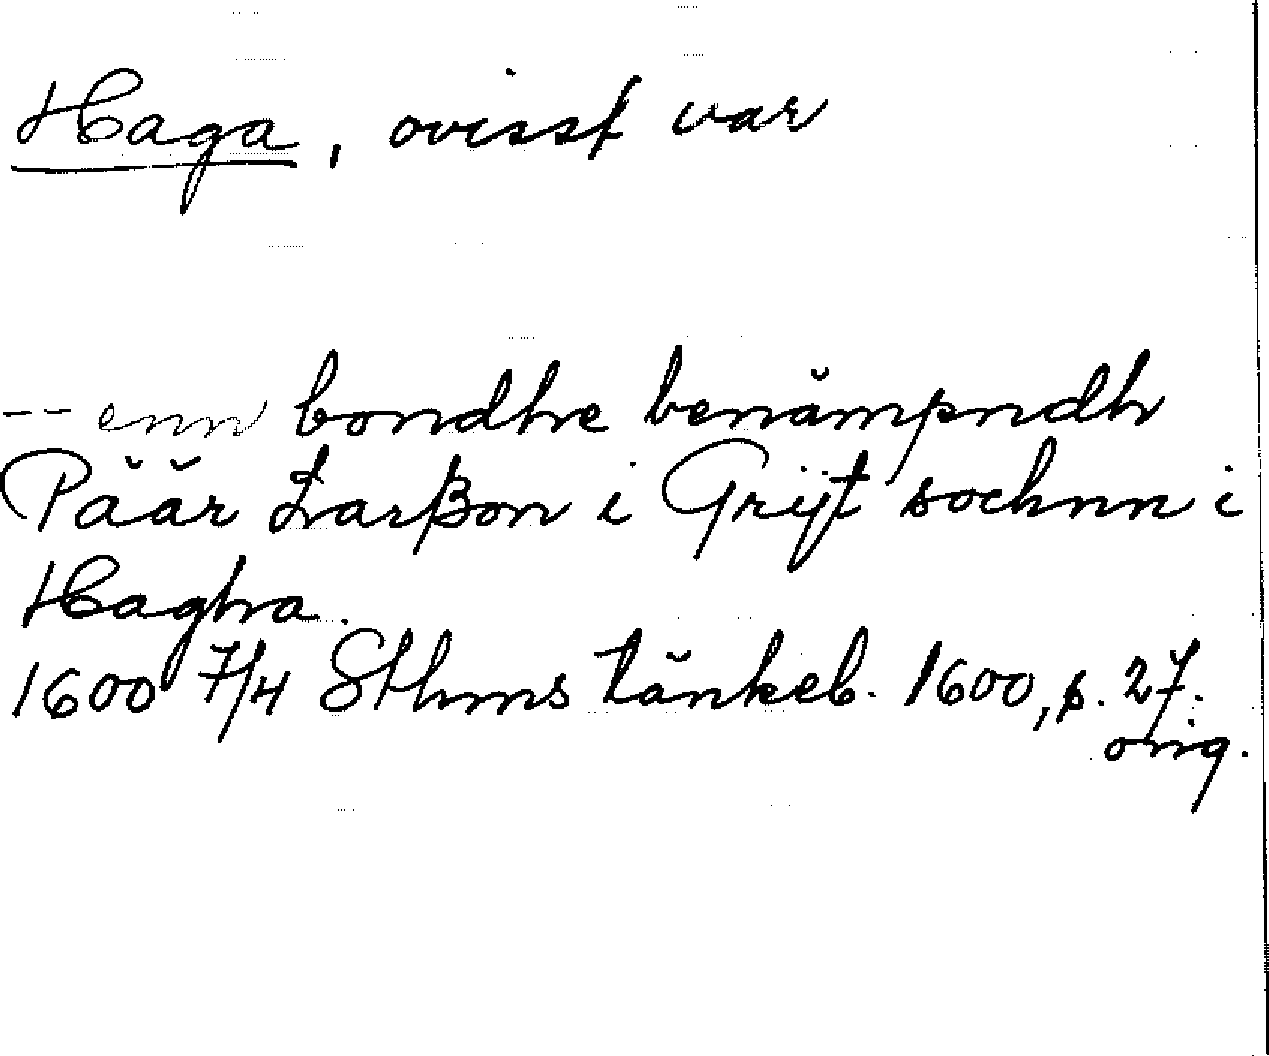 Haga, ovisst var
-- enn bondhe benämpndh
Päär Larßon i Grÿt sochnn i
Haghra.
1600 7/4 Sthms tänkeb. 1600, s. 27.
orig.